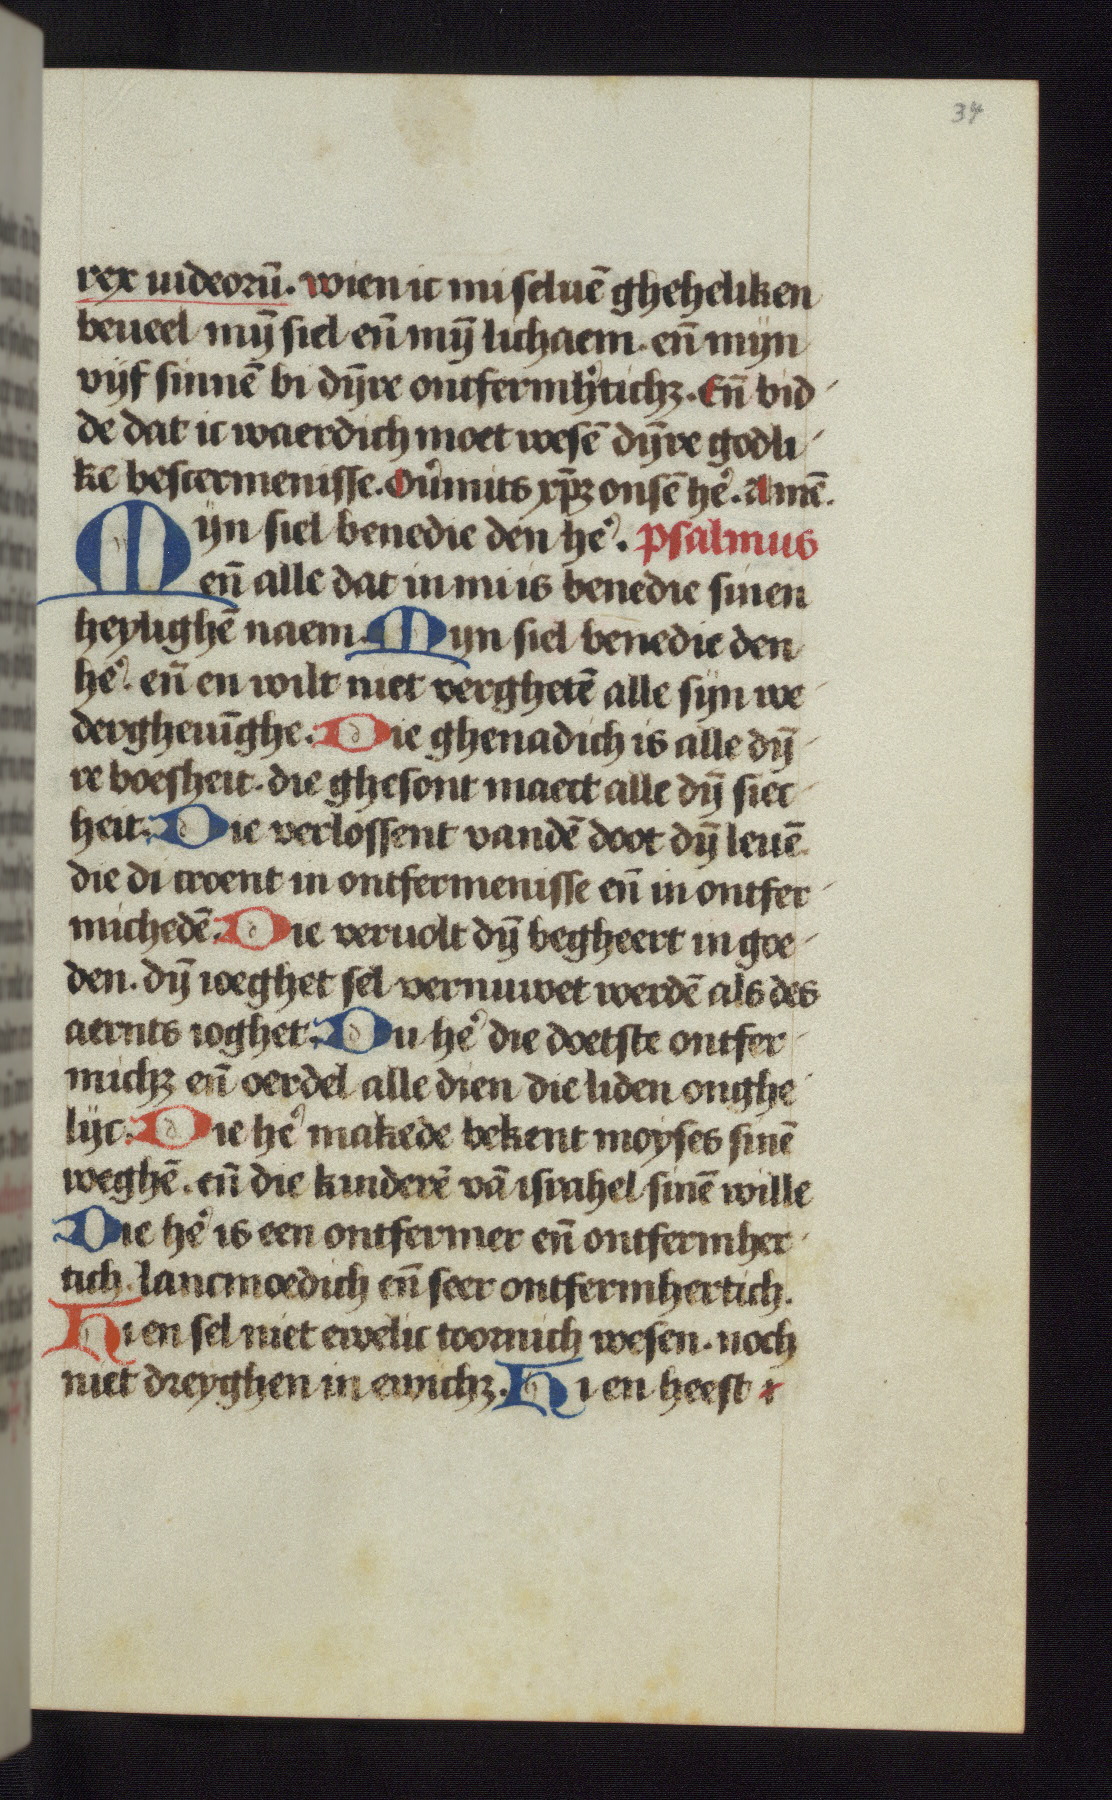 34
rex iudeorū. wien ic mi seluē gheheliken
beueel mȳ siel eñ mȳ lichaem. eñ mijn
vijf sinnē bi dȳre ontfermh'tichꝫ. Eñ bid
de dat ic waerdich moet wesē dȳre godli
ke beschermenisse. Ou'mits xp̄ꝫ onsē he'. Amē.
Mijn siel benedie den he'. psalmus
eñ alle dat in mi is benedie sinen
heylighē naem. Mijn siel benedie den
he'. eñ en wilt niet verghetē alle sijn we
dergheuīghe. Die ghenadich is alle dȳ
re boesheit. die ghesont maect alle dȳ siec
heit. Die verlossent vandē doot dȳ leuē.
die di croent in ontfermenisse eñ in ontfer
michedē. Die veruolt dȳ begheert in goe
den. dȳ ioeghet sel vernuwet werdē als des
aernts ioghet. Du he' die doetste ontfer
michꝫ eñ oerdel alle dien die liden onghe
lijc. Die he' makede bekent moyses sinē
weghē. eñ die kinderē vā israhel sinē wille
Die he' is een ontfermer eñ ontfermher
tich. lancmoedich eñ seer ontfermhertich.
Hi en sel niet ewelic toornich wesen. noch
niet dreyghen in ewichꝫ. Hi en heest